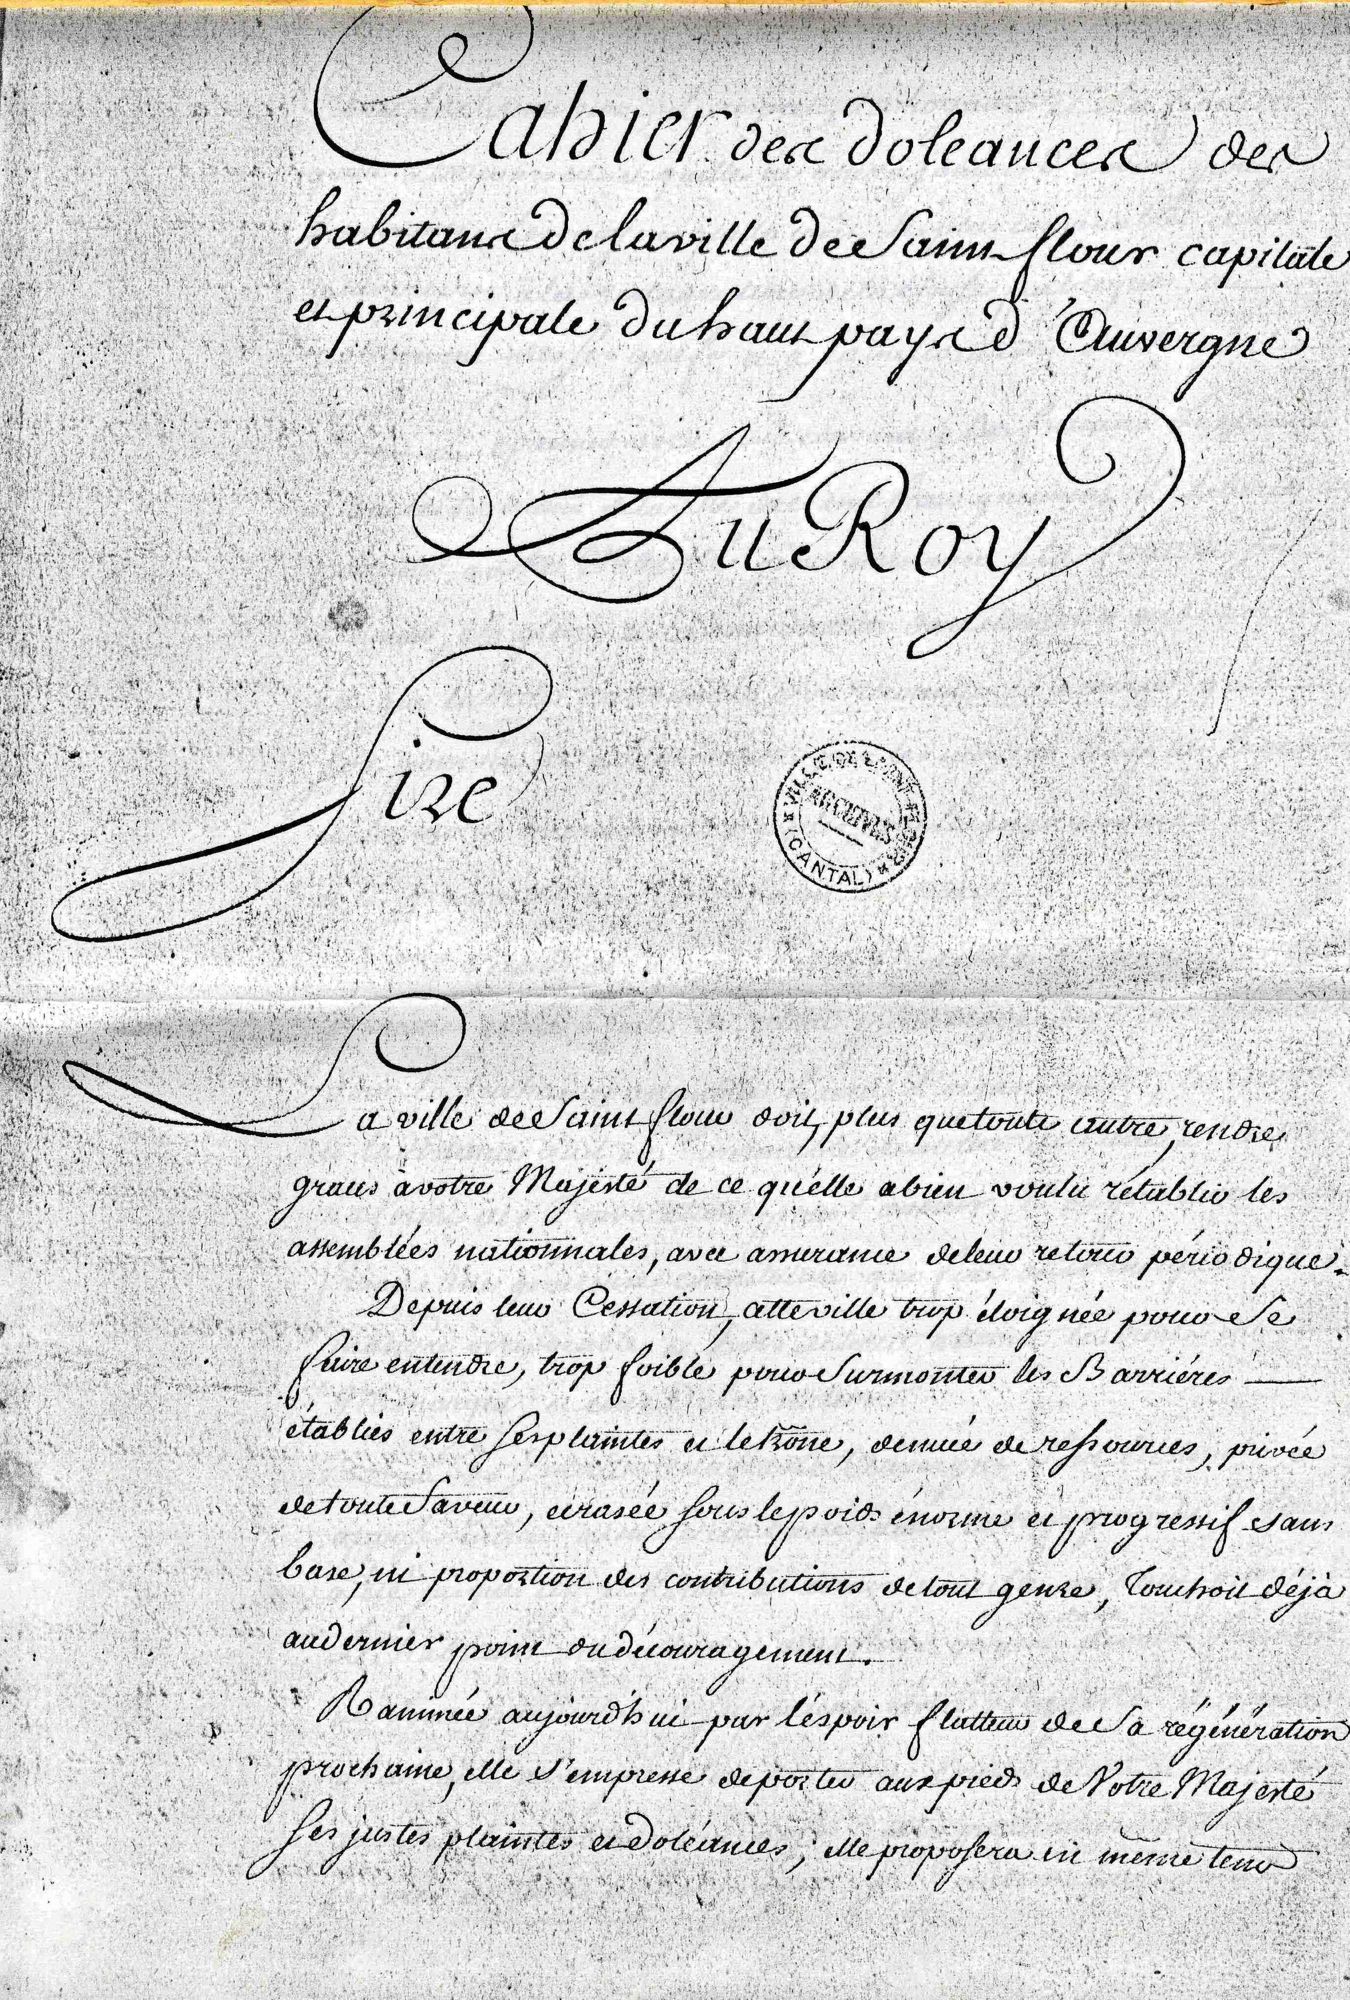 Cahier des doleances des
habitans de la ville de Saint flour capitale
et principale du haut pays d'Auvergne
Au Roy
Sire
VILLE DE SAINT-FLOUR
ARCHIVES
(CANTAL)
La ville de Saint flour doit, plus que toute autre, rendre
graces a votre Majesté de ce qu'elle a bien voulu rétablir les
assemblées nationnales, avec assurance de leur retour périodique.
Depuis leur Cessation, cette ville trop éloignée pour se
faire entendre, trop foible pour surmonter les Barriéres
établies entre ses plaintes et le trône, denuée de ressources, privée
de toute faveur, ecrasée sous le poids énorme et progressif sans
base, ni proportion des contributions de tout genre, touchoit déjà
au dernier point du découragement.
Ranimée aujourd'hui par l'éspoir flatteur de sa régénération
prochaine, elle s'empresse de porter aux pieds de Votre Majesté
ses justes plaintes et doléances; elle proposera en même tems